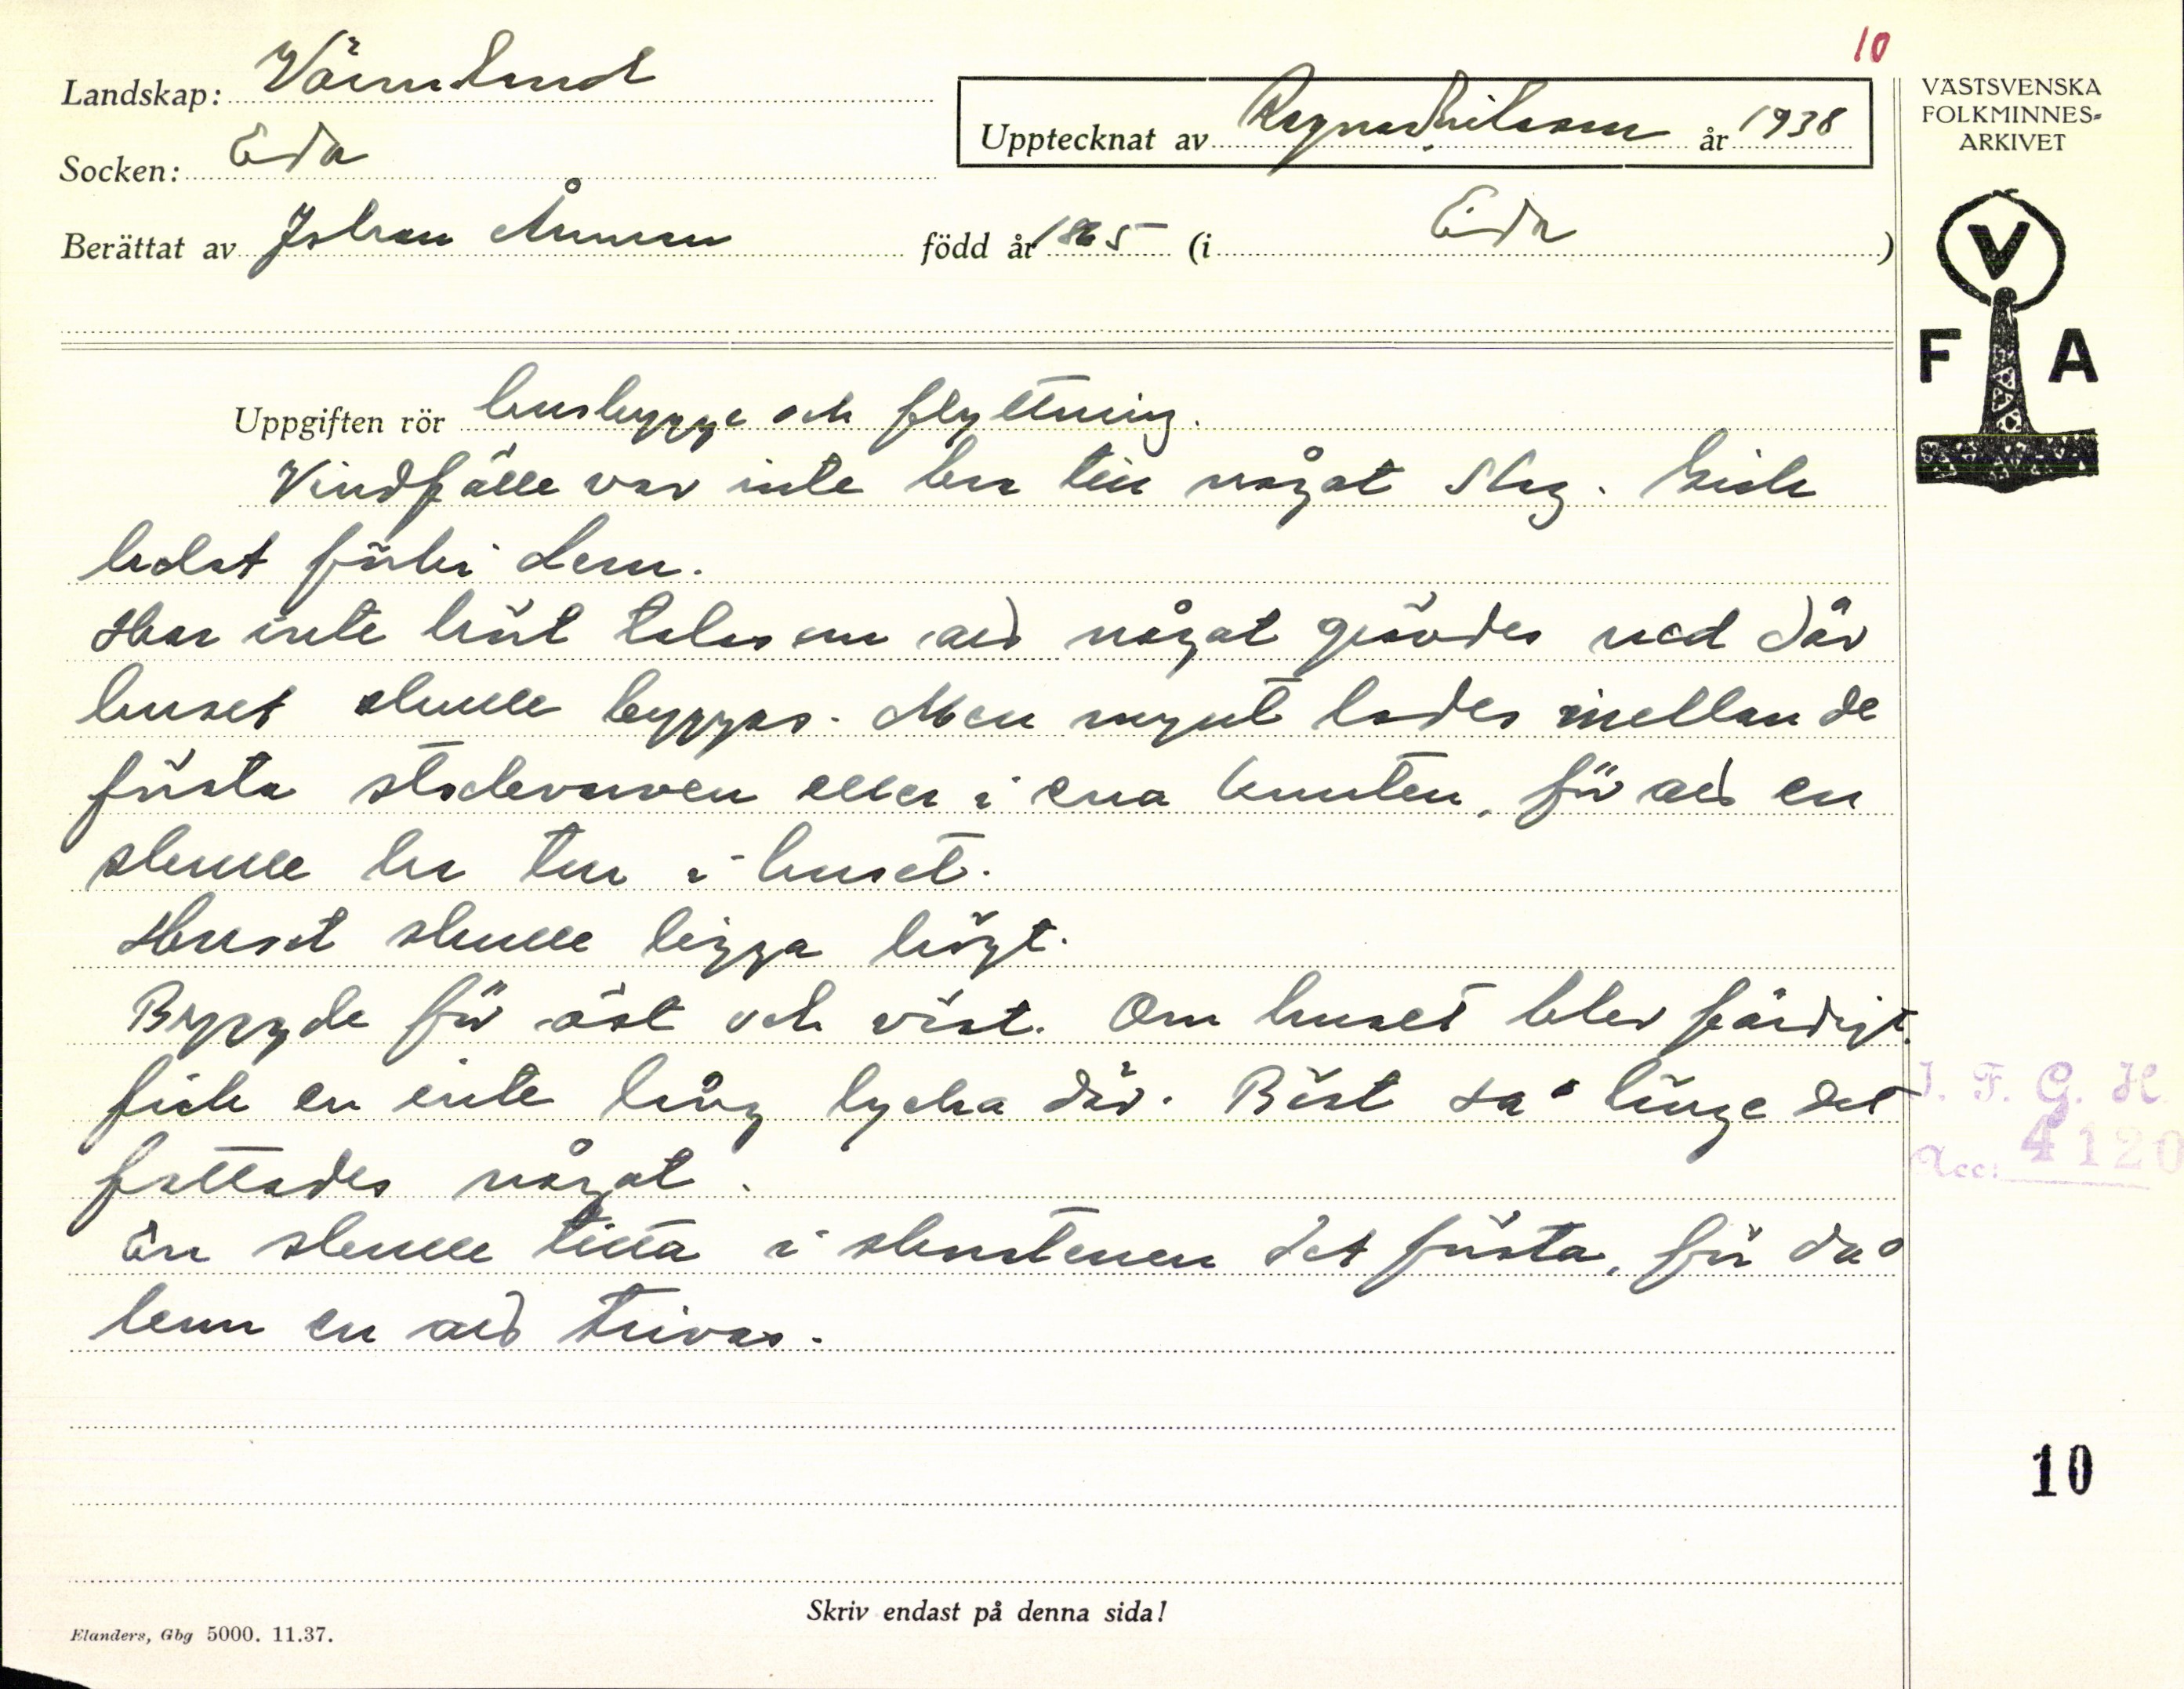 10
Landskap: Värmland
Socken: Eda
Upptecknat av Ragnar Nilsson år 1938
Berättat av Johan Åman född år 1865 (i Eda)
VÄSTSVENSKA
FOLKMINNES-
ARKIVET
V
F A
Uppgiften rör husbygge och flyttning.
Vindfälle var inte bra till något slag. Gick
helst förbi dem.
Har inte hört talas om att något grävdes ned där
huset skulle byggas. Men mynt lades mellan de
första stockvarven eller i ena knuten, för att en
skulle ha tur i huset.
Huset skulle ligga högt.
Byggde för öst och väst. Om huset blev färdigt
fick en inte lång lycka där. Bäst så länge det
fattades något.
En skulle titta i skorstenen det första, för då
kom en att trivas.
I. F. G. H.
Acc: 4120
10
Skriv endast på denna sida!
Elanders, Gbg 5000. 11.37.